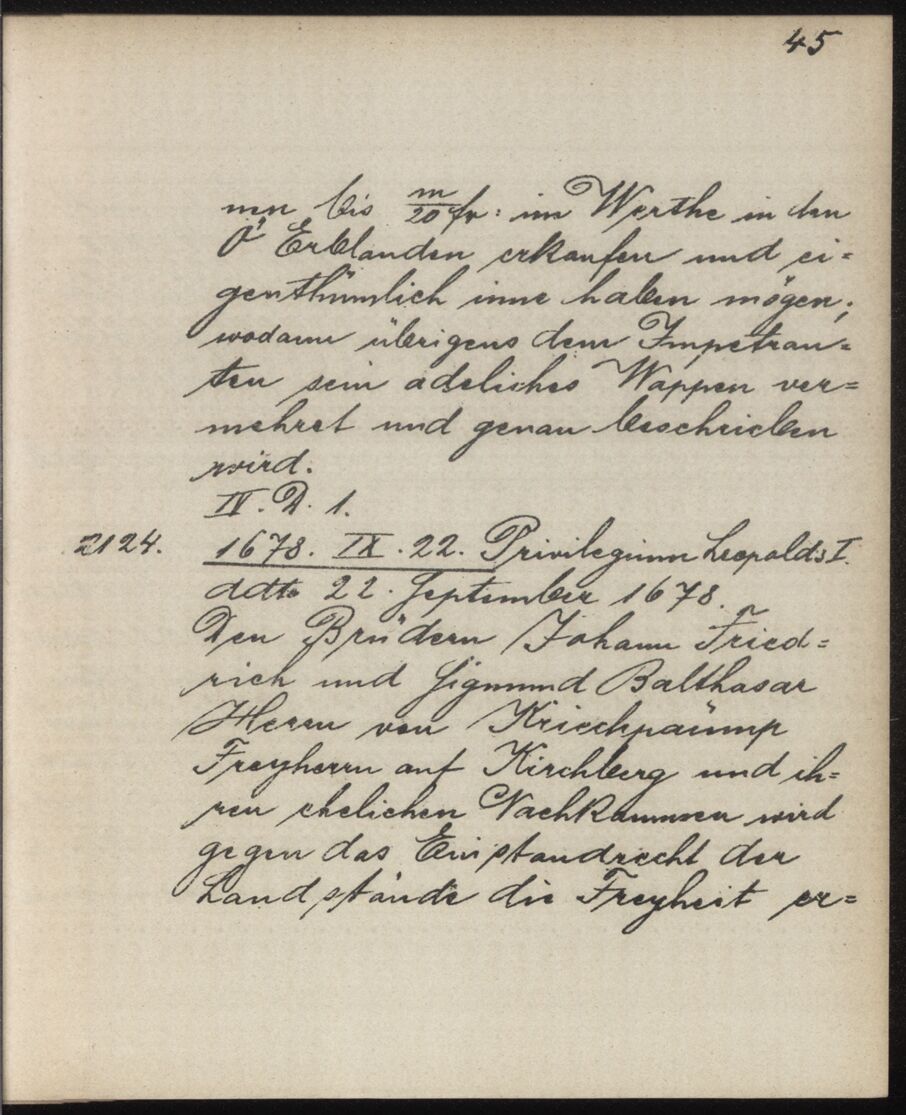 45
men bis m/20 fr: im Werthe in den
Ö Erblanden erkaufen und ei=
genthümlich inne haben mögen;
wodann übrigens dem Impetran=
ten sein adeliches Wappen ver=
mehret und genau beschrieben
wird.
IV. D. 1.
2124. 1678. IX. 22. Privilegium Leopolds I.
ddto 22. September 1678.
Den Brüdern Johann Fried=
rich und Sigmund Balthasar
Herrn von Kriechpaümp
Freyherrn auf Kirchberg und ih=
ren ehelichen Nachkommen wird
gegen das Einstandrecht der
Landstände die Freyheit er=